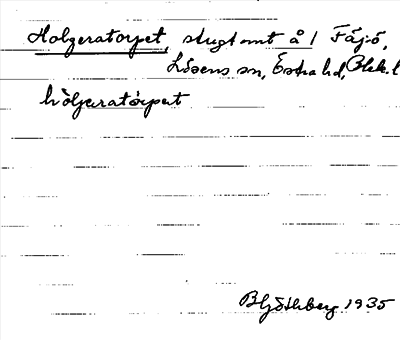 Holgeratorpet, stugtomt å 1 Fäjö,
Lösens sn, Östra hd, Blek. l
hòlgɐratòrpət
Bhj Göthberg 1935